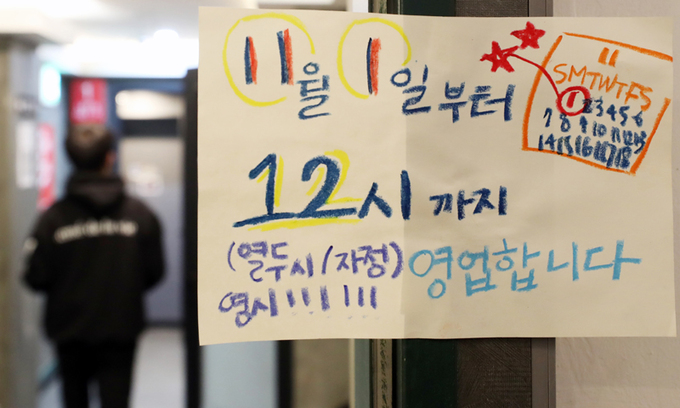 11월 1일부터
12시까지
(열두시/자정) 영업합니다
영시!!! !!!
11
SMTWTFS
1 2 3 4 5 6
7 8 9 10 11 12 13
14 15 16 17 18